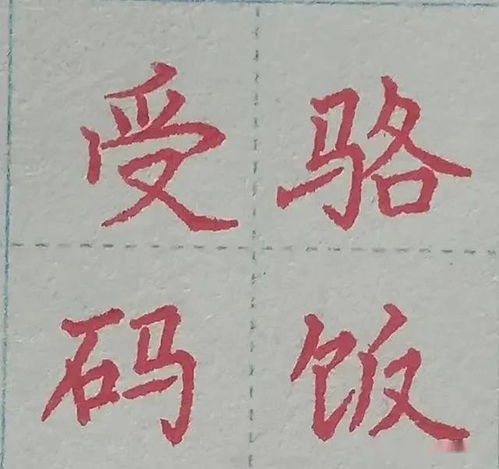 受骆
码饭